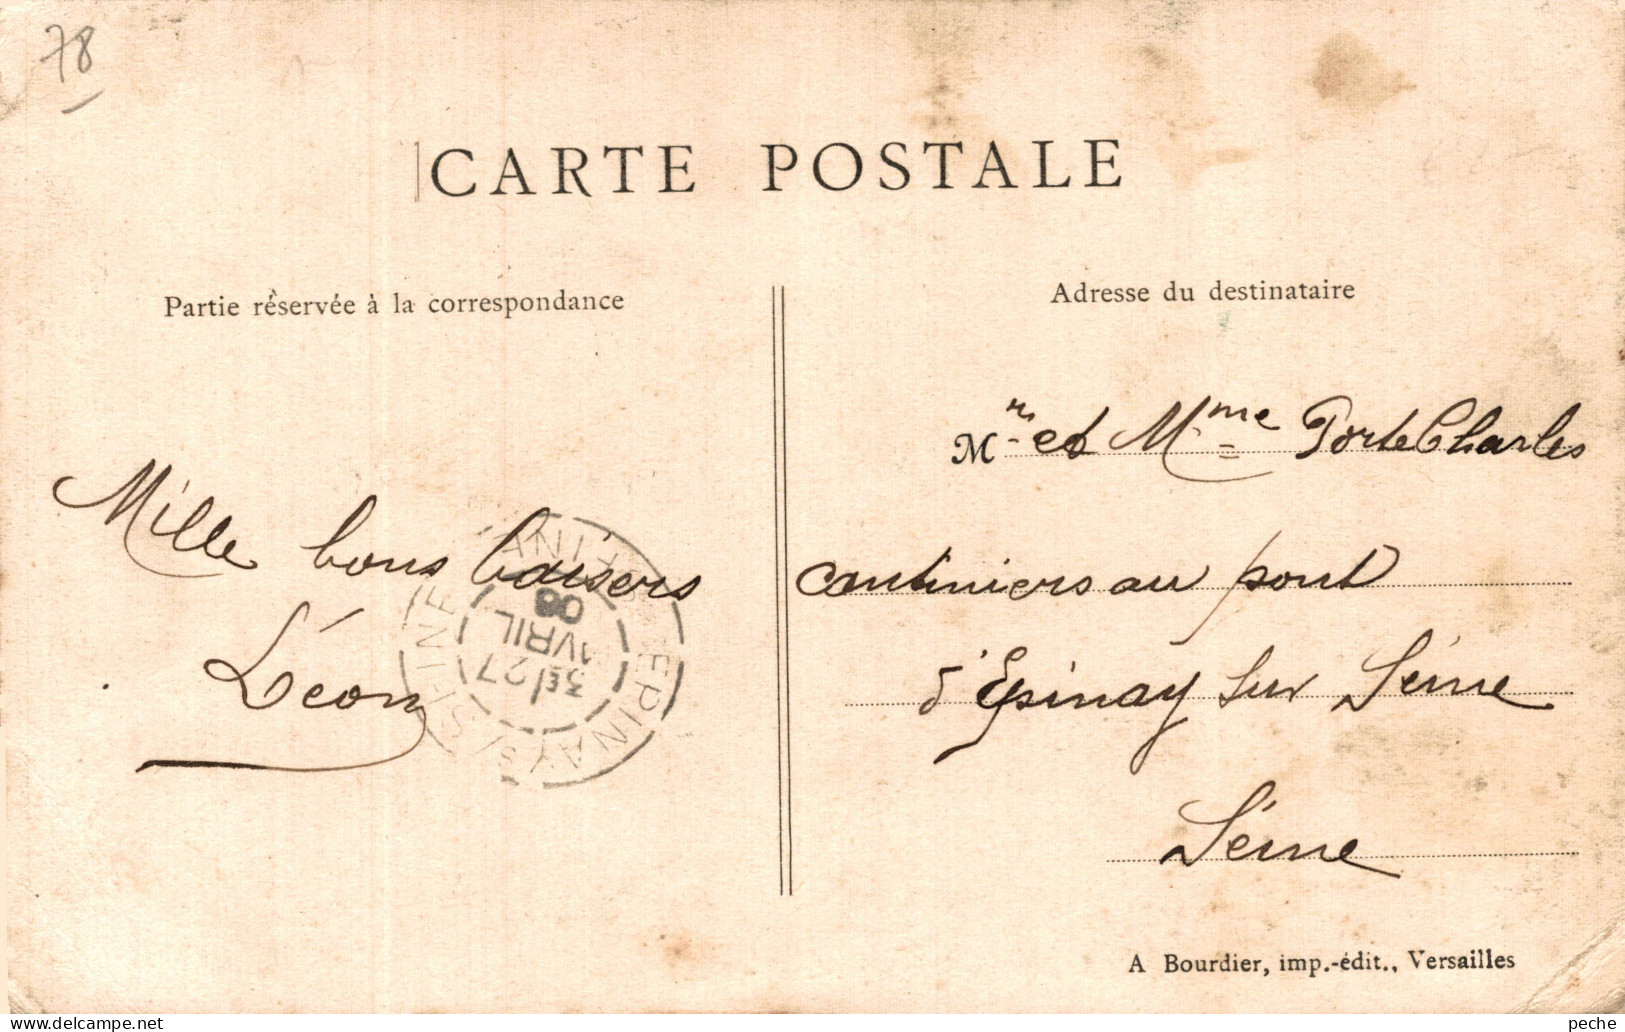 78
CARTE POSTALE
Partie réservée à la correspondance
Adresse du destinataire
Mille bons baisers
Léon
Mr et Mme Porte Charles
cantiniers au pont
d'Epinay sur Séine
Séine
EPINAY S/SEINE
3E/27
AVRIL
08
A Bourdier, imp.-édit., Versailles
delcampe.net
peche